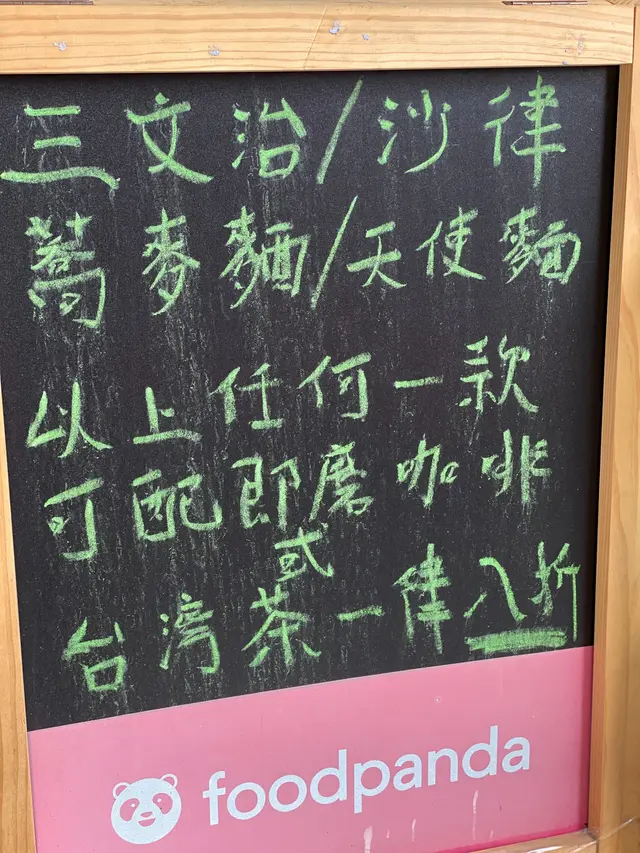 三文治/沙律
蕎麥麵/天使麵
以上任何一款
可配即磨咖啡
或
台灣茶一律八折
foodpanda